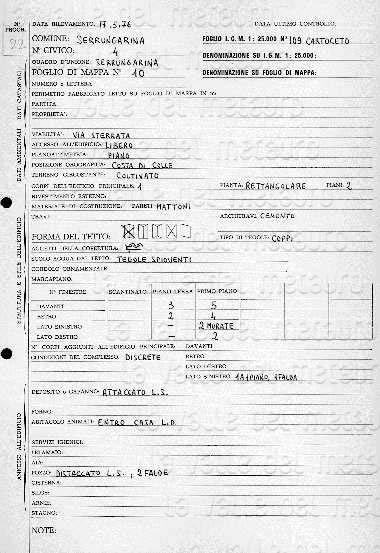 N° PROGR.
22
DATA RILEVAMENTO: 17.5.76
DATA ULTIMO CONTROLLO:
COMUNE: SERRUNGARINA
FOGLIO I.G.M. 1:25.000 N° 109 CARTOCETO
N° CIVICO: 4
DENOMINAZIONE SU I.G.M. 1:25.000:
QUADRO D'UNIONE: SERRUNGARINA
FOGLIO DI MAPPA N° 10
DENOMINAZIONE SU FOGLIO DI MAPPA:
NUMERO O LETTERA
PERIMETRO FABBRICATO LETTO SU FOGLIO DI MAPPA IN m
PARTITA
PROPRIETA'
DATI CATASTALI
VIABILITA': VIA STERRATA
ACCESSO ALL'EDIFICIO: LIBERO
PLANOALTIMETRIA: PIANO
POSIZIONE OROGRAFICA: COSTA DI COLLE
TERRENO CIRCOSTANTE: COLTIVATO
DATI AMBIENTALI
CORPI DELL'EDIFICIO PRINCIPALE: 1
PIANTA: RETTANGOLARE
PIANI 2
RIVESTIMENTO ESTERNO:
MATERIALE DI COSTRUZIONE: PARETI MATTONI
TRAVI
ARCHITRAVI CEMENTO
FORMA DEL TETTO:
TIPO DI TEGOLE: COPPI
AGGETTI DELLA COPERTURA:
SCOLO ACQUA DAL TETTO: TEGOLE SPIOVENTI
CORDOLO ORNAMENTALE
MARCAPIANO:
N° FINESTRE SCANTINATO PIANO TERRA PRIMO PIANO
DAVANTI 3 5
RETRO 2 4
LATO SINISTRO – 2 MURATE
LATO DESTRO – 2
N° CORPI AGGIUNTI ALL'EDIFICIO PRINCIPALE: DAVANTI
CONDIZIONI DEL COMPLESSO: DISCRETE
RETRO
LATO DESTRO
LATO SINISTRO 1A1PIANO, 1FALDA
DEPOSITO o CAPANNO: ATTACCATO L.S.
FORNO:
RICOVERO ANIMALI: ENTRO CASA L.D.
SERVIZI IGIENICI:
LETAMAIO:
AIA:
POZZO: DISTACCATO L.S., 2 FALDE
CISTERNA:
SILOS:
ARNIE:
STAGNO:
ANNESSI ALL'EDIFICIO
NOTE: